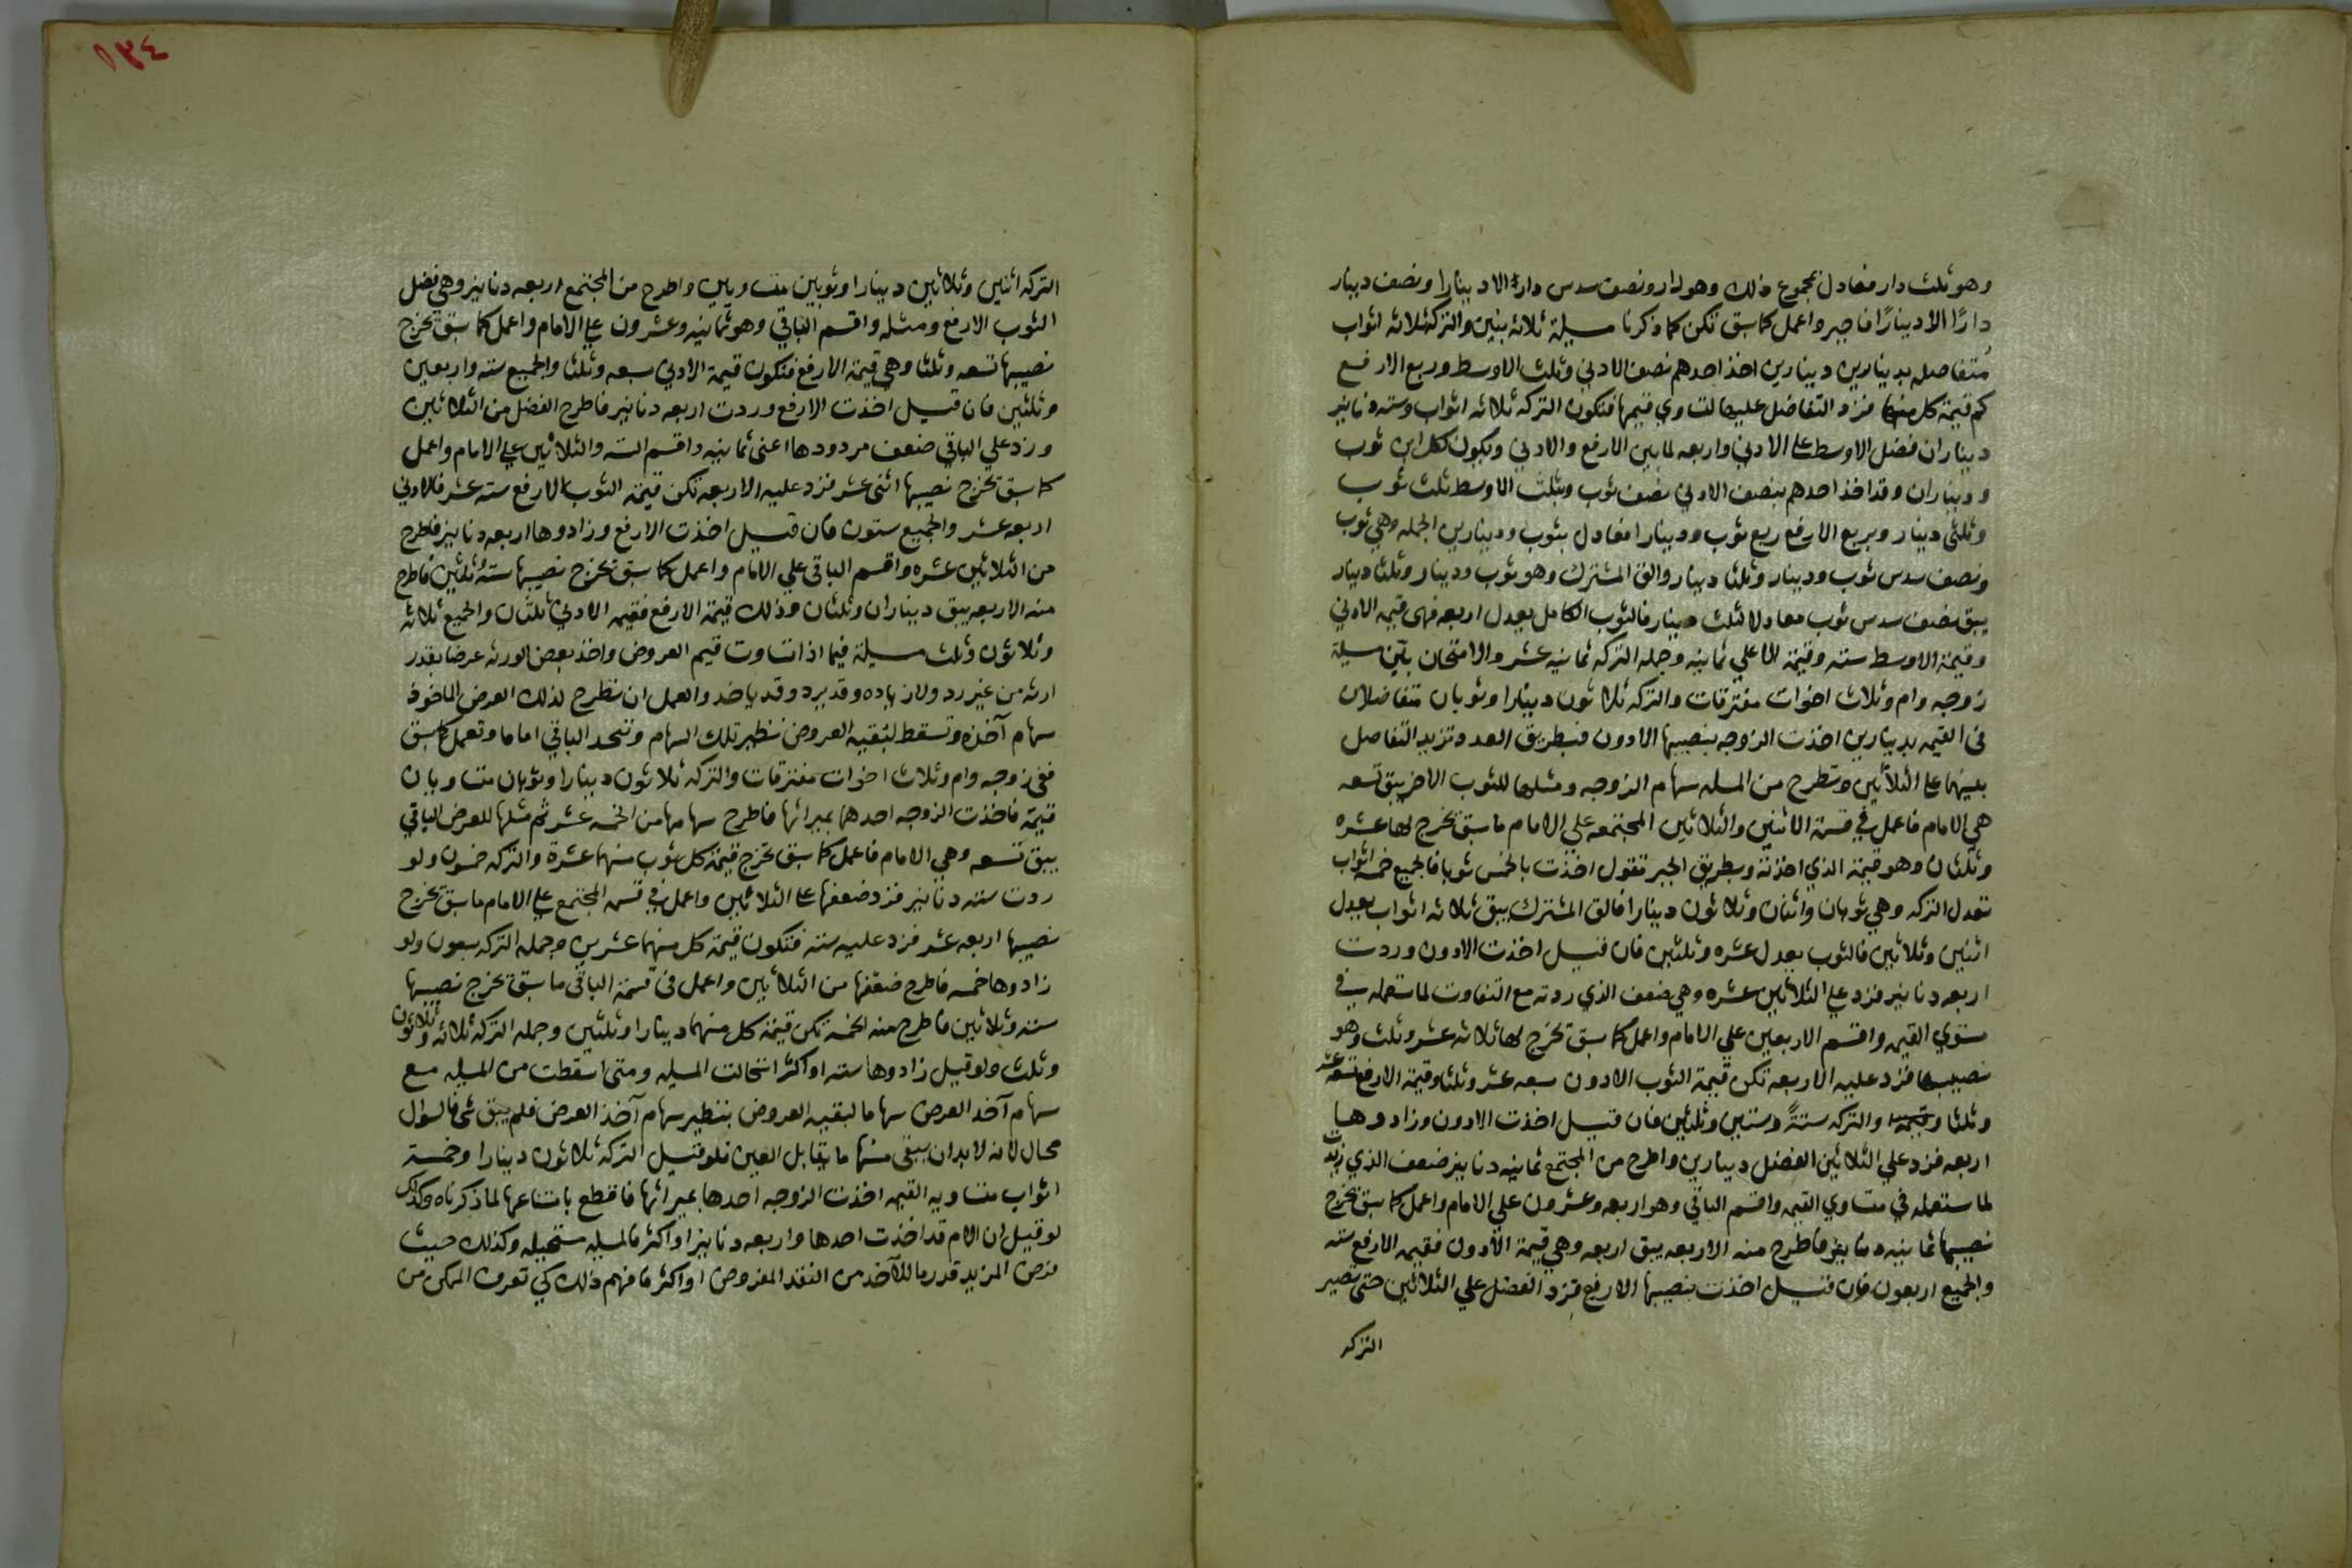 وهو ثلث دار معادل مجموع ذلك وهو دار ونصف سدس دار الا دينارا ونصف دينار
دارًا الا دينارًا فاجبر واعمل كما سبق تكن كما ذكرنا مسيلة ثلاثة بنين والتركة ثلاثه اثواب
متفاضله بدينارين دينارين اخذ احدهم نصف الادني وثلث الاوسط وربع الارفع
كم قيمة كل منها فزد التفاضل عليها لتساوي قيمها فتكون التركه ثلاثه اثواب وسته دنانير
ديناران فضل الاوسط علي الادني واربعه لما بين الارفع والادني ويكون لكل ابن ثوب
وديناران وقد اخذ احدهم بنصف الادني نصف ثوب وبثلث الاوسط ثلث ثوب
وثلثى دينار وبربع الارفع ربع ثوب ودينارا فعادل بثوب ودينارين الجمله وهي ثوب
ونصف سدس ثوب ودينار وثلثا دينار والق المشترك وهو ثوب ودينار وثلثا دينار
يبق نصف سدس ثوب معادلا لثلث دينار فالثوب الكامل يعدل اربعه فهى قيمه الادني
وقيمة الاوسط سته وقيمة الاعلي ثمانيه وجمله التركه ثمانيه عشر والامتحان بيّن مسيلة
زوجه وام وثلاث اخوات مفترقات والتركه ثلاثون دينارا وثوبان متفاضلان
فى القيمه بدينارين اخذت الزوجه بنصيبها الادون فبطريق العدد تزيد التفاضل
بينهما علي الثلاثين وتطرح من المسله سهام الزوجه ومثلها للثوب الاخر يبق تسعه
هي الامام فاعمل في قسمة الاثنين والثلاثين المجتمعه علي الامام ما سبق يخرج لها عشره
وثلثان وهو قيمة الذي اخذته وبطريق الجبر تقول اخذت بالخمس ثوبا فالجميع خمسه اثواب
تعدل التركه وهي ثوبان واثنان وثلاثون دينارا فالق المشترك يبق ثلاثه اثواب يعدل
اثنين وثلاثين فالثوب يعدل عشره وثلثين فان قيل اخذت الادون وردت
اربعه دنانير فزد علي الثلاثين عشره وهي ضعف الذي ردته مع التفاوت لما ستعمله في
مستوي القيمه واقسم الاربعين علي الامام واعمل كما سبق تخرج لها ثلاثه عشر وثلث وهو
نصيبها فزد عليه الاربعه تكن قيمة الثوب الادون سبعه عشر وثلثا وقيمة الارفع تسعه عشر
وثلثا والتركه ستةً وستين وثلثين فان قيل اخذت الادون وزادوها
اربعه فزد علي الثلاثين الفضل دينارين واطرح من المجتمع ثمانيه دنانير ضعف الذي زيدت
لما ستعمله في متساوي القيمه واقسم الباقي وهو اربعه وعشرون علي الامام واعمل كما سبق يخرج
نصيبها ثمانيه دنانير فاطرح منه الاربعه يبق اربعه وهي قيمة الادون فقيمه الارفع سته
والجميع اربعون فان قيل اخذت بنصيبها الارفع فزد الفضل علي الثلاثين حتى تصير
التركه
١٣٤
التركه اثنين وثلاثين دينارا وثوبين متساويين واطرح من المجتمع اربعه دنانير وهي فضل
الثوب الارفع ومثله واقسم الباقي وهو ثمانيه وعشرون علي الامام واعمل كما سبق يخرج
نصيبها تسعه وثلثا وهي قيمة الارفع فتكون قيمة الادني سبعه وثلثا والجميع سته واربعين
وثلثين فان قيل اخذت الارفع وردت اربعه دنانير فاطرح الفضل من الثلاثين
وزد علي الباقي ضعف مردودها اعنى ثمانيه واقسم السته والثلاثين علي الامام واعمل
كما سبق يخرج نصيبها اثنى عشر فزد عليه الاربعه تكن قيمة الثوب الارفع سته عشر فالادني
اربعه عشر والجميع ستون فان قيل اخذت الارفع وزادوها اربعه دنانير فاطرح
من الثلاثين عشره واقسم الباقى علي الامام واعمل كما سبق يخرج نصيبها سته وثلثين فاطرح
منه الاربعه يبق ديناران وثلثان وذلك قيمة الارفع فقيمه الادني ثلثان والجميع ثلاثه
وثلاثون وثلث مسيلة فيما اذا تساوت قيم العروض واخذ بعض الورثه عرضا بقدر
ارثه من غير رد ولا زياده وقد يرد وقد ياخذ والعمل ان تطرح لذلك العرض الماخوذ
سهام آخذه وتسقط لبقيه العروض نظير تلك السهام وتتخذ الباقي اماما وتعمل كما سبق
ففى زوجه وام وثلاث اخوات مفترقات والتركه ثلاثون دينارا وثوبان متساويان
قيمة فاخذت الزوجه احدهما بميراثها فاطرح سهامها من الخمسه عشر ثم مثلها للعرض الباقي
يبق تسعه وهي الامام فاعمل كما سبق تخرج قيمة كل ثوب منهما عشرة والتركه خمسون ولو
ردت سته دنانير فزد ضعفها علي الثلاثين واعمل في قسمه المجتمع علي الامام ما سبق تخرج
نصيبها اربعه عشر فزد عليه سته فتكون قيمة كل منهما عشرين وجمله التركه سبعون ولو
زادوها خمسه فاطرح ضعفها من الثلاثين واعمل فى قسمة الباقى ما سبق تخرج نصيبها
سته وثلاثين فاطرح منه الخمسه تكن قيمة كل منهما دينارا وثلثين وجمله التركه ثلاثه وثلاثون
وثلث ولو قيل زادوها سته او اكثر استحالت المسيله ومتى اسقطت من المسيله مع
سهام آخذ العرض سهاما لبقيه العروض بنظير سهام آخذ العرض فلم يبق شى فالسوال
محال لانه لا بد ان يبقى منها ما يقابل العين فلو قيل التركه ثلاثون دينارا وخمسة
اثواب متساويه القيمه اخذت الزوجه احدها بميراثها فاقطع بامتناعها لما ذكرناه وكذلك
لو قيل ان الام قد اخذت احدها واربعه دنانير او اكثر فالمسيله مستحيله وكذلك حيث
فرض المزيد قدر ما للآخذ من النقد المفروض او اكثر فافهم ذلك كي تعرف الممكن من